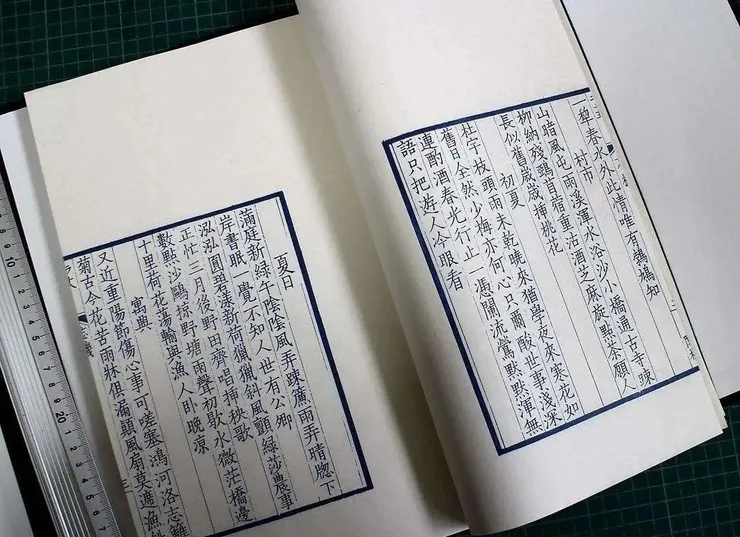 一犂春水外此情唯有知
村市
山暗風屯雨溪渾水浴沙小橋通古寺疎
柳納殘鴉首宿重沽酒芝麻旋點茶願人
長似舊歲歲揷桃花
初夏
杜宇枝頭雨未乾曉來猶學夜來寒花如
舊日全然少梅亦何心只爾酸世事淺深
連酌酒春光行止一憑闌流鶯默默渾無
語只把遊人冷眼看
夏日
滿庭新綠午陰陰風弄疎簾雨弄晴牕下
岸書眠一覺不知人世有公卿
泓泓圓碧漾新荷獵獵斜風顫綠莎農事
正忙三月後野田齊唱揷秧歌
數點沙鷗掠野塘雨聲初歇水微茫橋邊
十里荷花蕩輸與漁人卧晚凉
寓興
又近重陽節傷心重可嗟塞鴻河洛志籬
菊古今花苦雨牀俱漏顛風扇莫遮漁樵
10
20